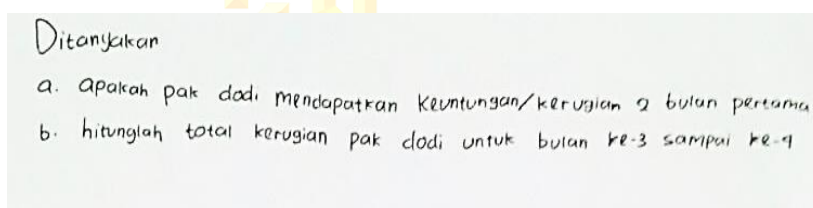 Ditanyakan
a. apakah pak dodi mendapatkan keuntungan/kerugian 2 bulan pertama
b. hitunglah total kerugian pak dodi untuk bulan ke-3 sampai ke-9